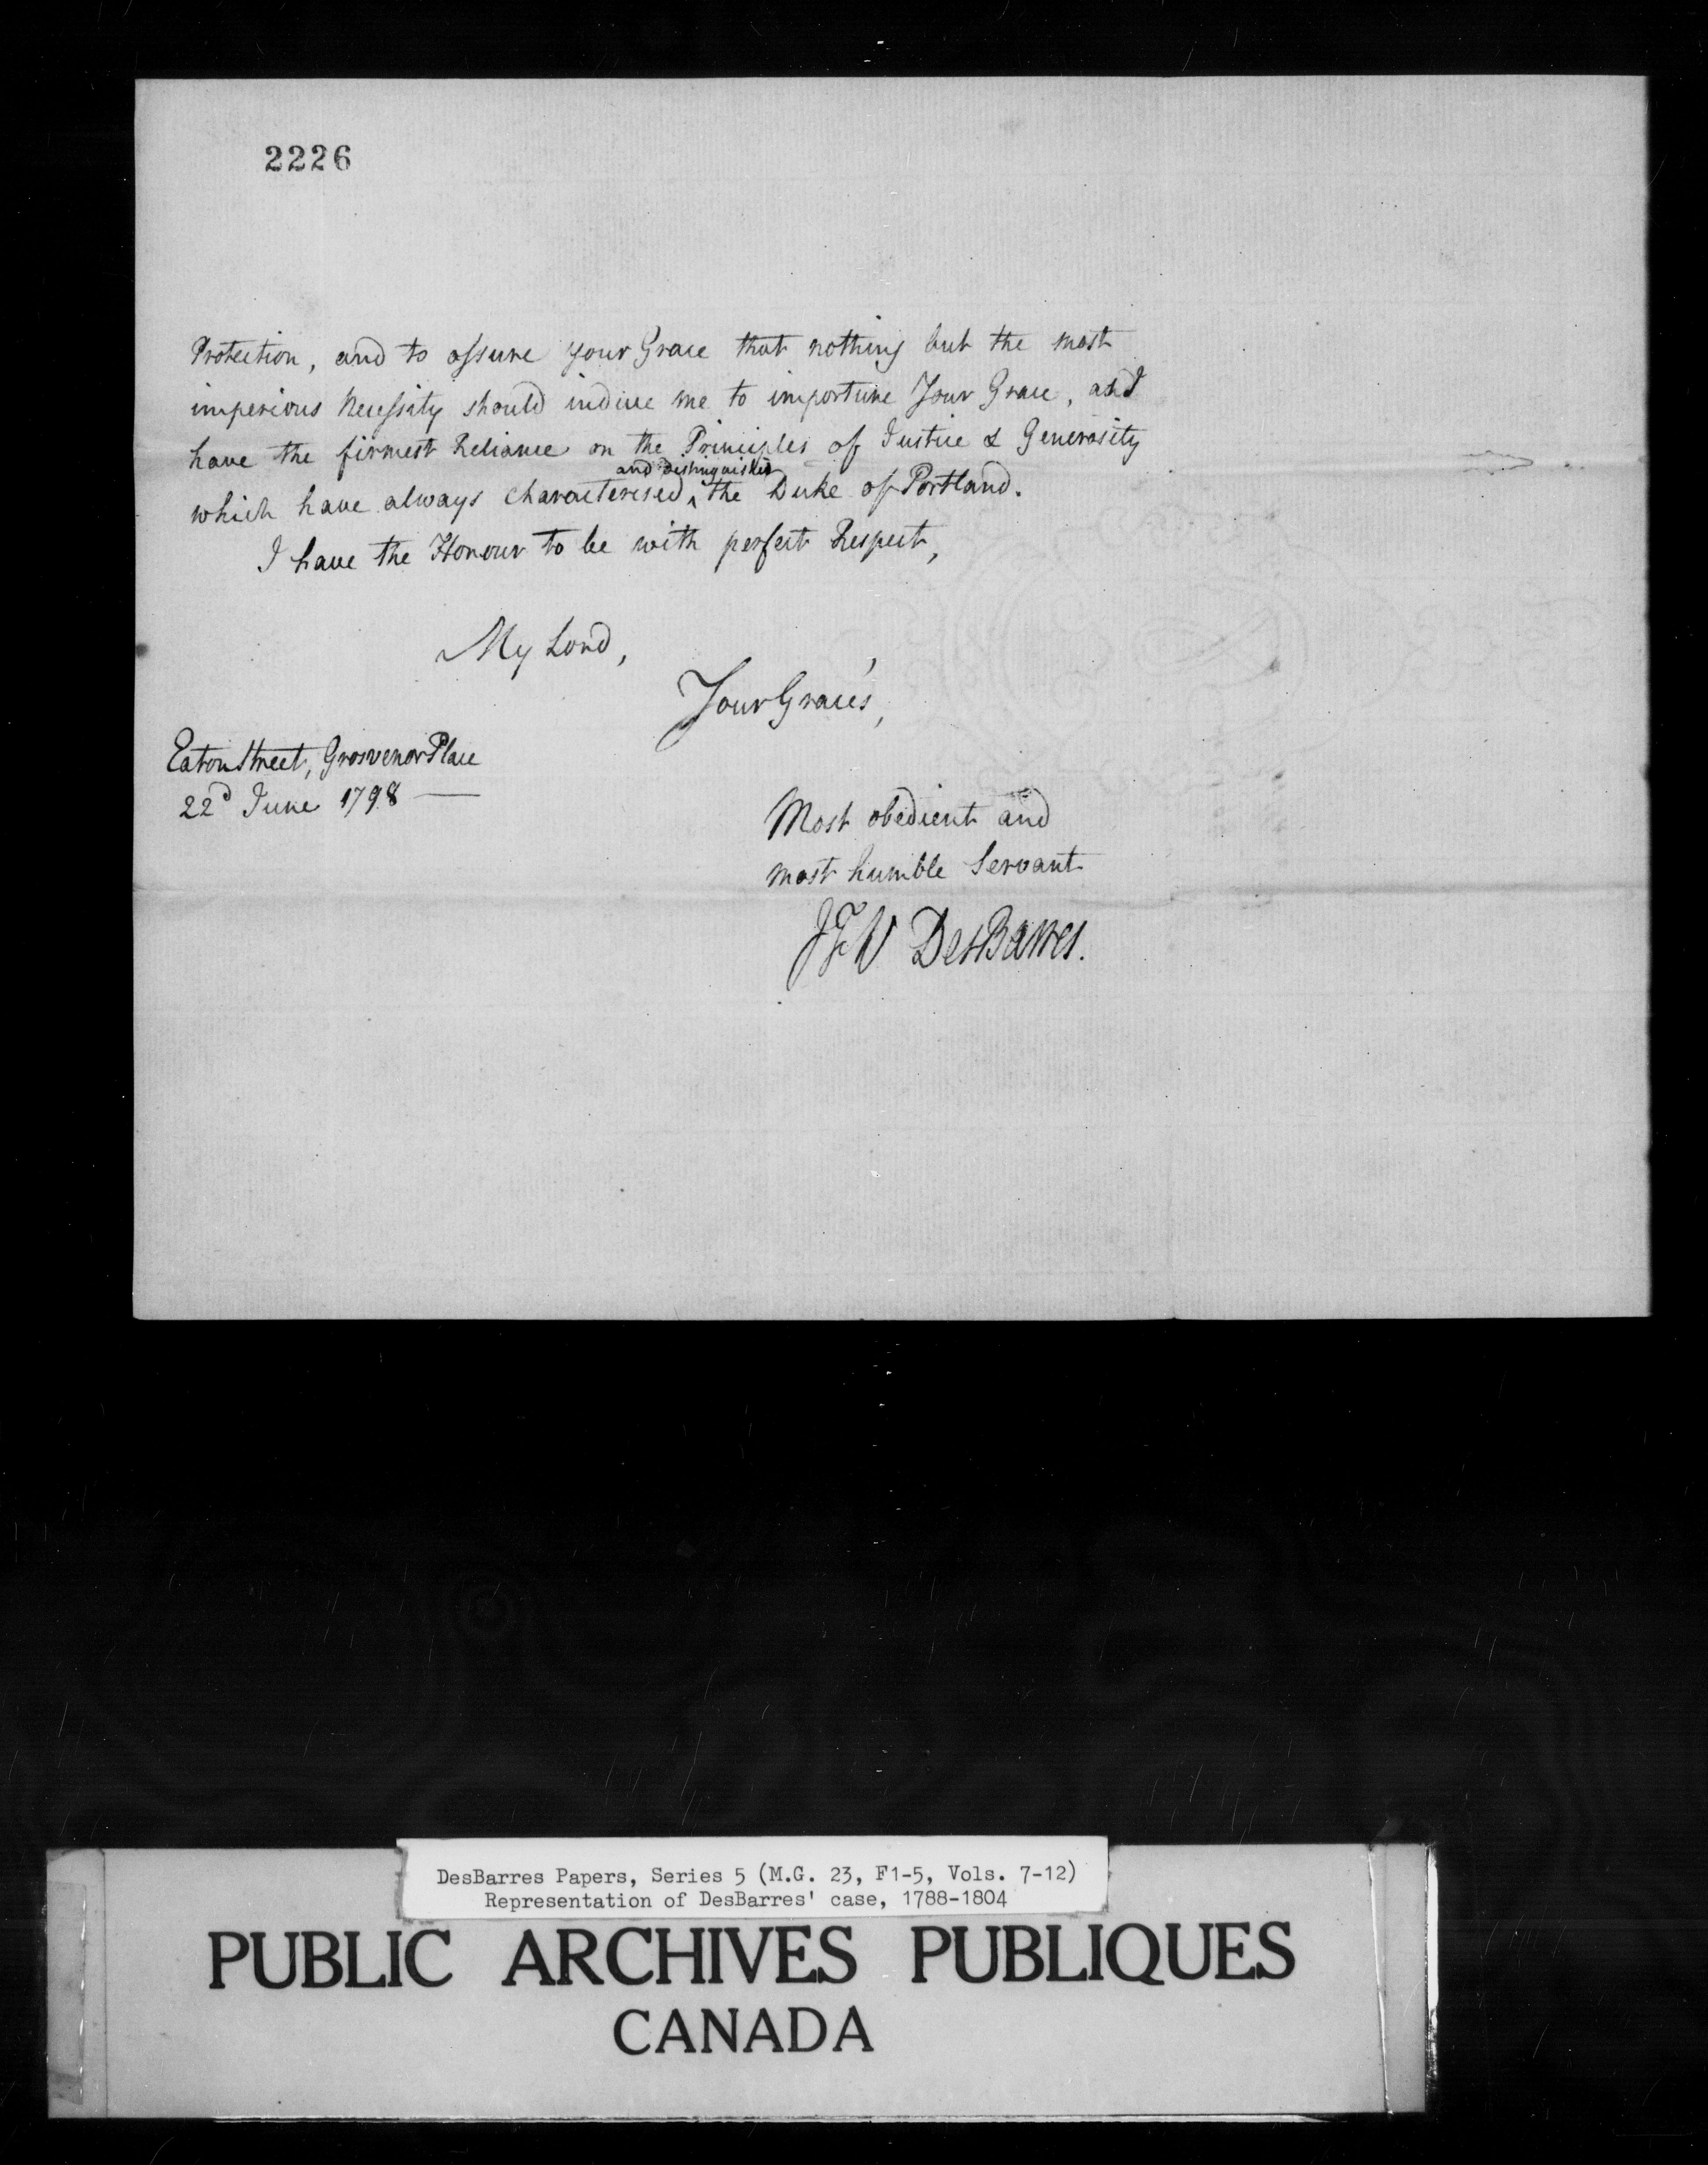 2226
Protection, and to assure your Grace that nothing but the most
imperious Necessity should induce me to importune Your Grace, and
have the firmest Reliance on the Principles of Justice & Generosity
and distinguished
which have always characterised ^ the Duke of Portland.
I have the Honour to be with perfect Respect,
My Lord,
Your Grace's,
Eaton Street, Grosvenor Place
22d June 1798 —
Most obedient and
most humble Servant
JFW DesBarres.
DesBarres Papers, Series 5 (M.G. 23, F1-5, Vols. 7-12)
Representation of DesBarres' case, 1788-1804
PUBLIC ARCHIVES PUBLIQUES
CANADA